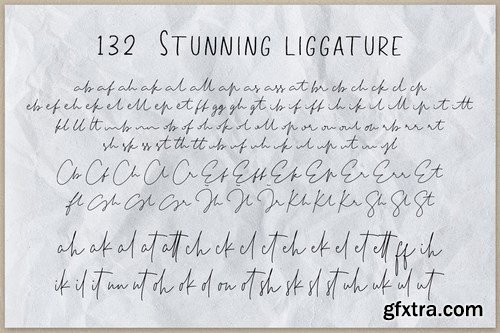 132 STUNNING LIGGATURE
ab af ah ak al all ap as ass at br cb ch ck cl cp
eb ef eh ek el ell ep et ff gg gh gt ib if iff ih ik il ill ip it itt
kl ll lt mb nn ob of oh ok ol oll op or ou oul ow rb rr rt
sh sk ss st th tt ub uf uh uk ul up ut un yl
Cb Cf Ch Cl Cr Ef Eff Ek Ep Er Err Et
fl Gh Gl Gr Jh Jl Jr Kh Kl Kr Sh Sl St
ah ak al at att ch ck cl ct eh ek el et ett ff ih
ik il it nn nt oh ok ol on ot sh sk sl st uh uk ul ut
gfxtra.com